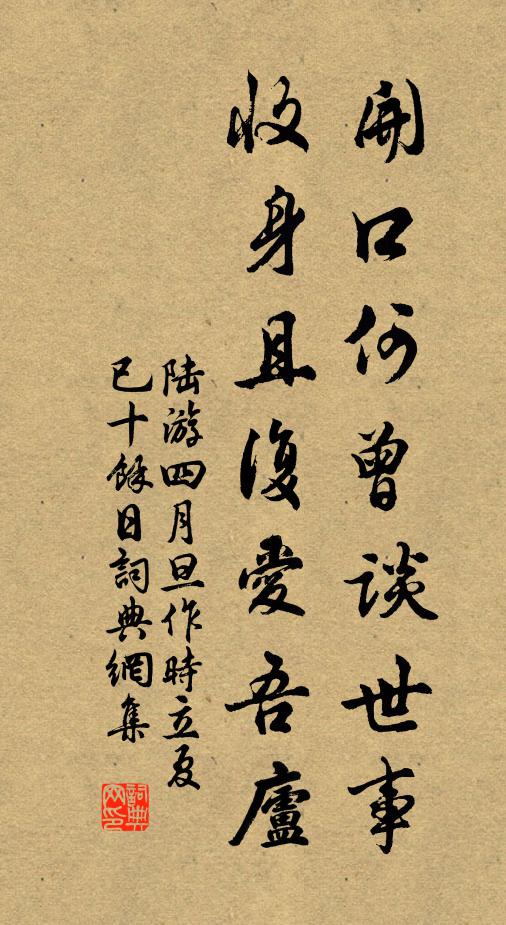 開口何曾談世事
收身且復愛吾廬
陸游四月旦作時立夏
已十餘日詞典網集
詞典網印